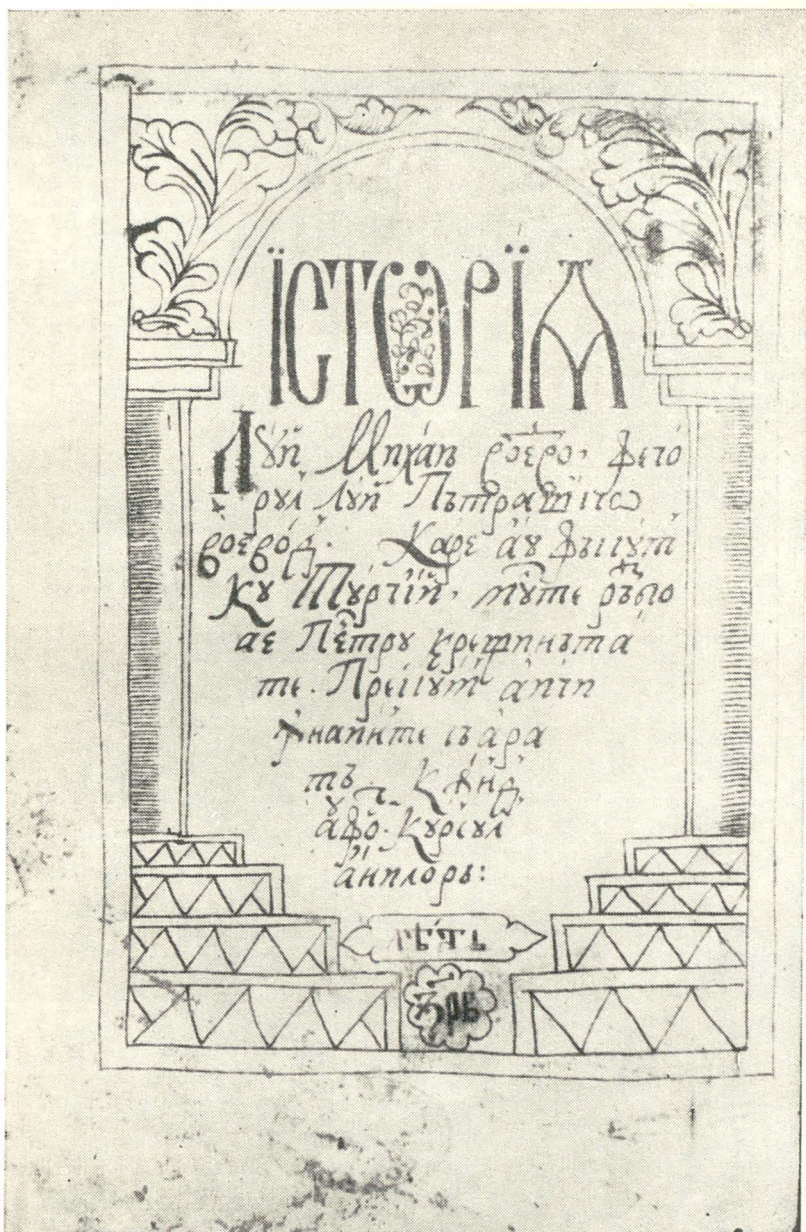 ЇСТѠРЇѦ
Лꙋй Михаи воево. фечо
рꙋл Лꙋй Пътрашко
воевод. Каре аꙋ фъкꙋт
Кꙋ Тꙋрчїй. мꙋте ръзбо
ае Петрꙋ крещинъта
те. Прекꙋм
ꙟнаинте съ ара
тъ. Кѫнд
Кꙋрсꙋл
анилорь:
Зрв